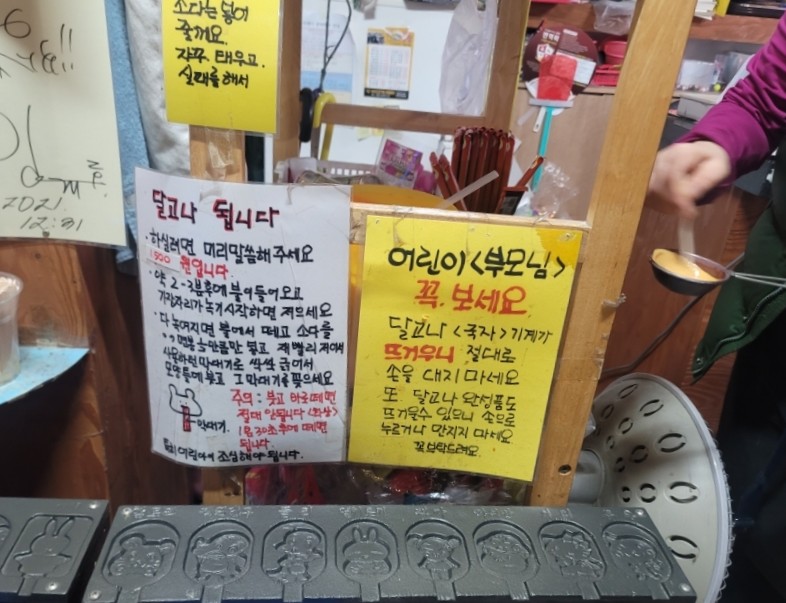 소다는 넣어
줄께요.
자꾸 태우고.
실패를해서
2021.
12:31
달고나 됩니다
·하실려면 미리말씀해주세요
1500 원입니다.
·약 2-3분후에 불이들어오고
가장자리가 녹기시작하면 저으세요
·다 녹여지면 불에서 떼고 소다를
넣고 재빨리 저어서
사용하던 막대기로 싹싹 긁어서
모양틀에붓고 그 막대기를 꽂으세요
주의 : 붓고 바로 떼면
절대 안됩니다 <화상>
1분 30초후에 떼면
됩니다.
막대기.
조심해야 됩니다.
어린이 <부모님>
꼭. 보세요
달고나 <국자> 기계가
뜨거우니 절대로
손을 대지 마세요
또 달고나 완성품도
뜨거울수 있으니 손으로
누르거나 만지지 마세요
꼭부탁드려요.